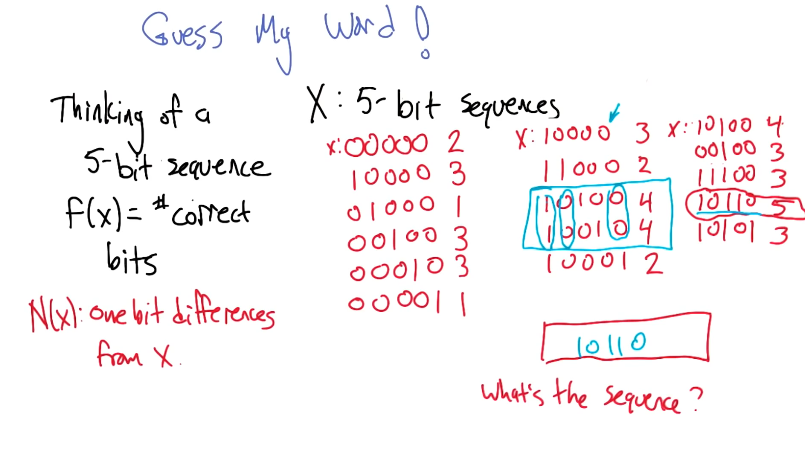 Guess My Word!
Thinking of a
5-bit sequence
f(x)= # correct
bits
N(x): one bit differences
from X.
X: 5-bit sequences
x:00000 2
10000 3
01000 1
00100 3
00010 3
00001 1
x:10000 3
11000 2
10100 4
10010 4
10001 2
x:10100 4
00100 3
11100 3
10110 5
10101 3
10110
What's the sequence?